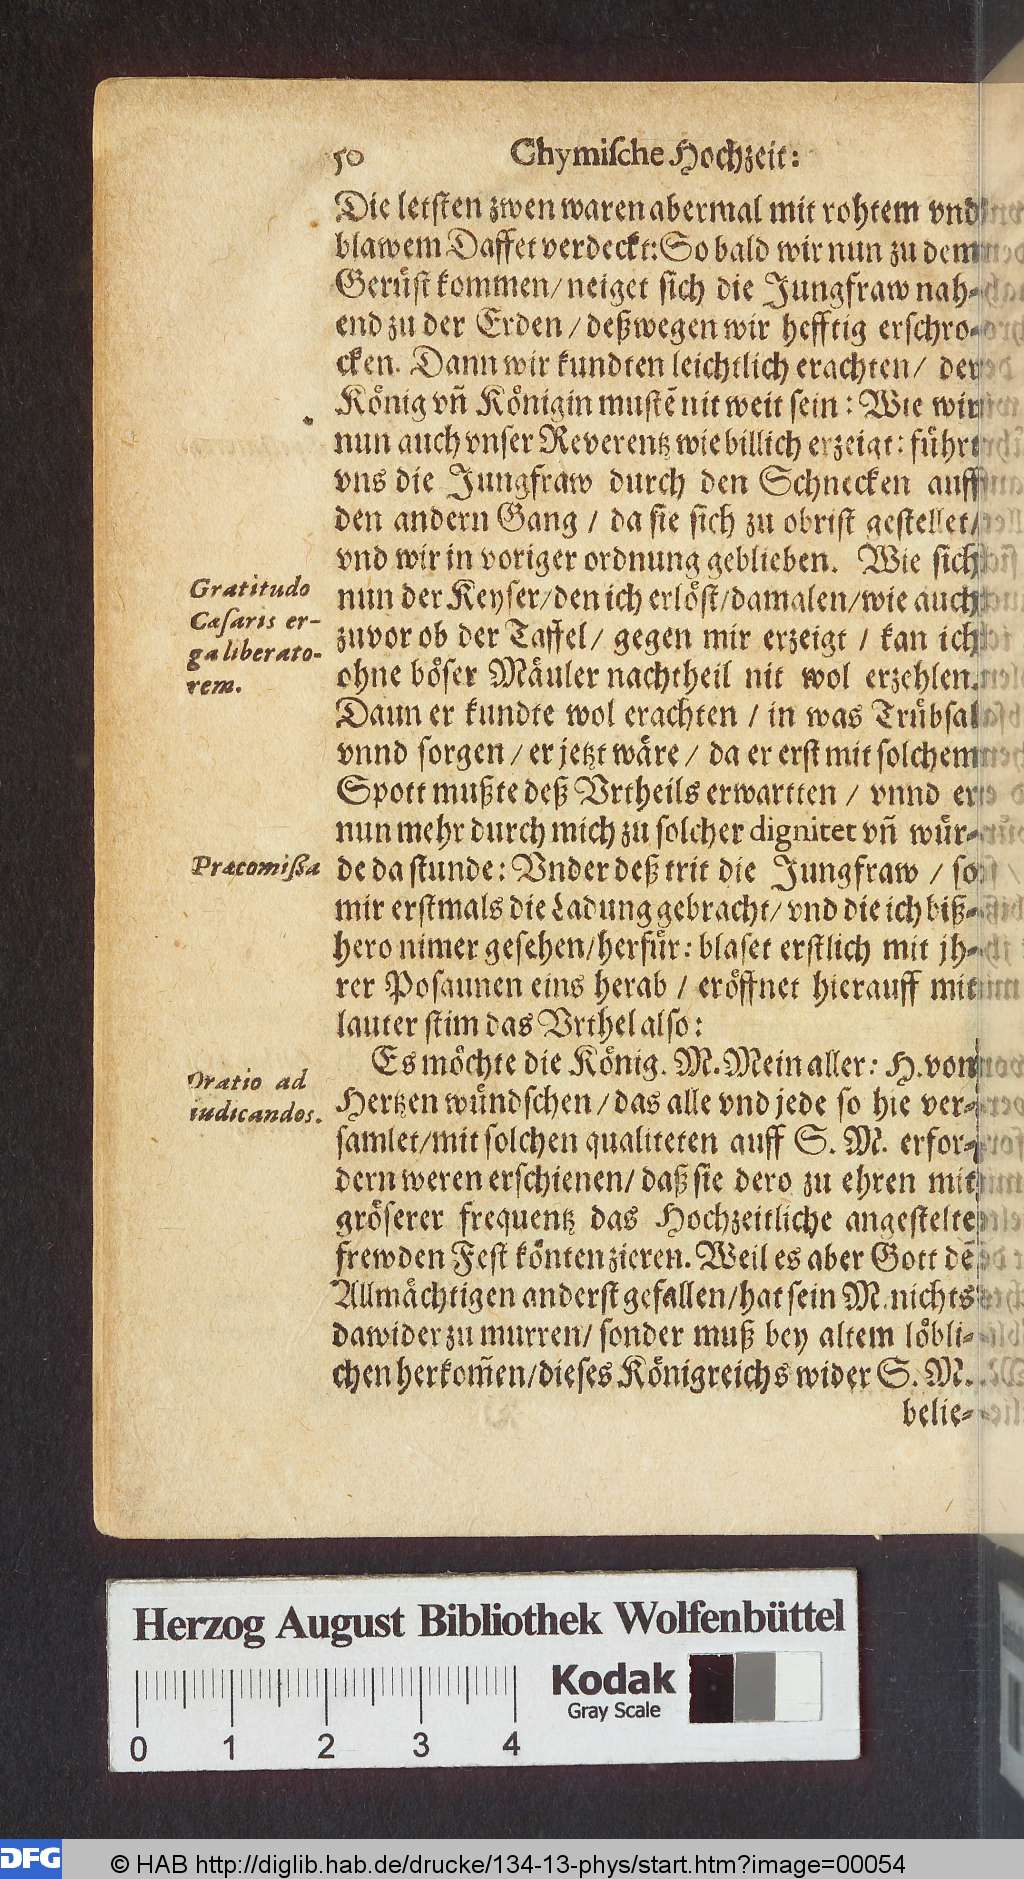 50 Chymische Hochzeit:
Die letsten zwen waren abermal mit rohtem vnd
blawem Daffet verdeckt: So bald wir nun zu dem
Gerüst kommen/ neiget sich die Jungfraw nah-
end zu der Erden/ deßwegen wir hefftig erschro-
cken. Dann wir kundten leichtlich erachten/ der
König vñ Königin mustẽ nit weit sein: Wie wir
nun auch vnser Reverentz wie billich erzeigt: führt
vns die Jungfraw durch den Schnecken auff
den andern Gang / da sie sich zu obrist gestellet/
vnd wir in voriger ordnung geblieben. Wie sich
Gratitudo
Cæsaris er-
ga liberato-
rem.
nun der Keyser/ den ich erlöst/ damalen/ wie auch
zuvor ob der Taffel/ gegen mir erzeigt / kan ich
ohne böser Mäuler nachtheil nit wol erzehlen.
Dann er kundte wol erachten / in was Trübsal
vnnd sorgen / er jetzt wäre / da er erst mit solchem
Spott mußte deß Vrtheils erwartten / vnnd er
nun mehr durch mich zu solcher dignitet vñ wür-
Præcomißa
de da stunde: Vnder deß trit die Jungfraw / so
mir erstmals die Ladung gebracht/ vnd die ich biß-
hero nimer gesehen/ herfür: blaset erstlich mit jh-
rer Posaunen eins herab / eröffnet hierauff mit
lauter stim das Vrthel also:
Oratio ad
iudicandos.
Es möchte die König. M. Mein aller: H. von
Hertzen wündschen/ das alle vnd jede so hie ver-
samlet/ mit solchen qualiteten auff S. M. erfor-
dern weren erschienen/ daß sie dero zu ehren mit
gröserer frequentz das Hochzeitliche angestelte
frewden Fest könten zieren. Weil es aber Gott dẽ
Allmächtigen anderst gefallen/ hat sein M. nichts
dawider zu murren/ sonder muß bey altem löbli-
chen herkom̃en/ dieses Königreichs wider S. M.
belie-
Herzog August Bibliothek Wolfenbüttel
Kodak
Gray Scale
0 1 2 3 4
DFG © HAB http://diglib.hab.de/drucke/134-13-phys/start.htm?image=00054